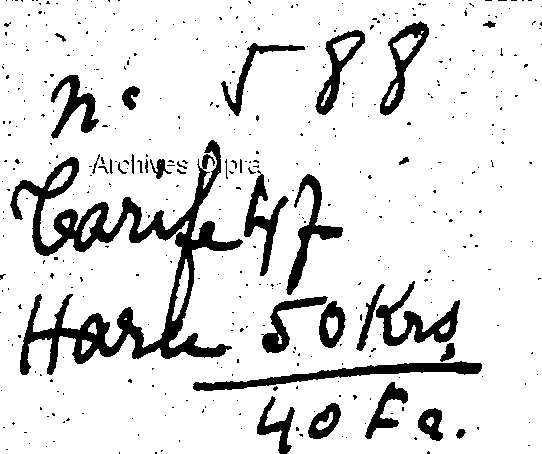 n° 588
Archives Olpra
Tarife 47
Haru 50 Krs,
40 Fa.